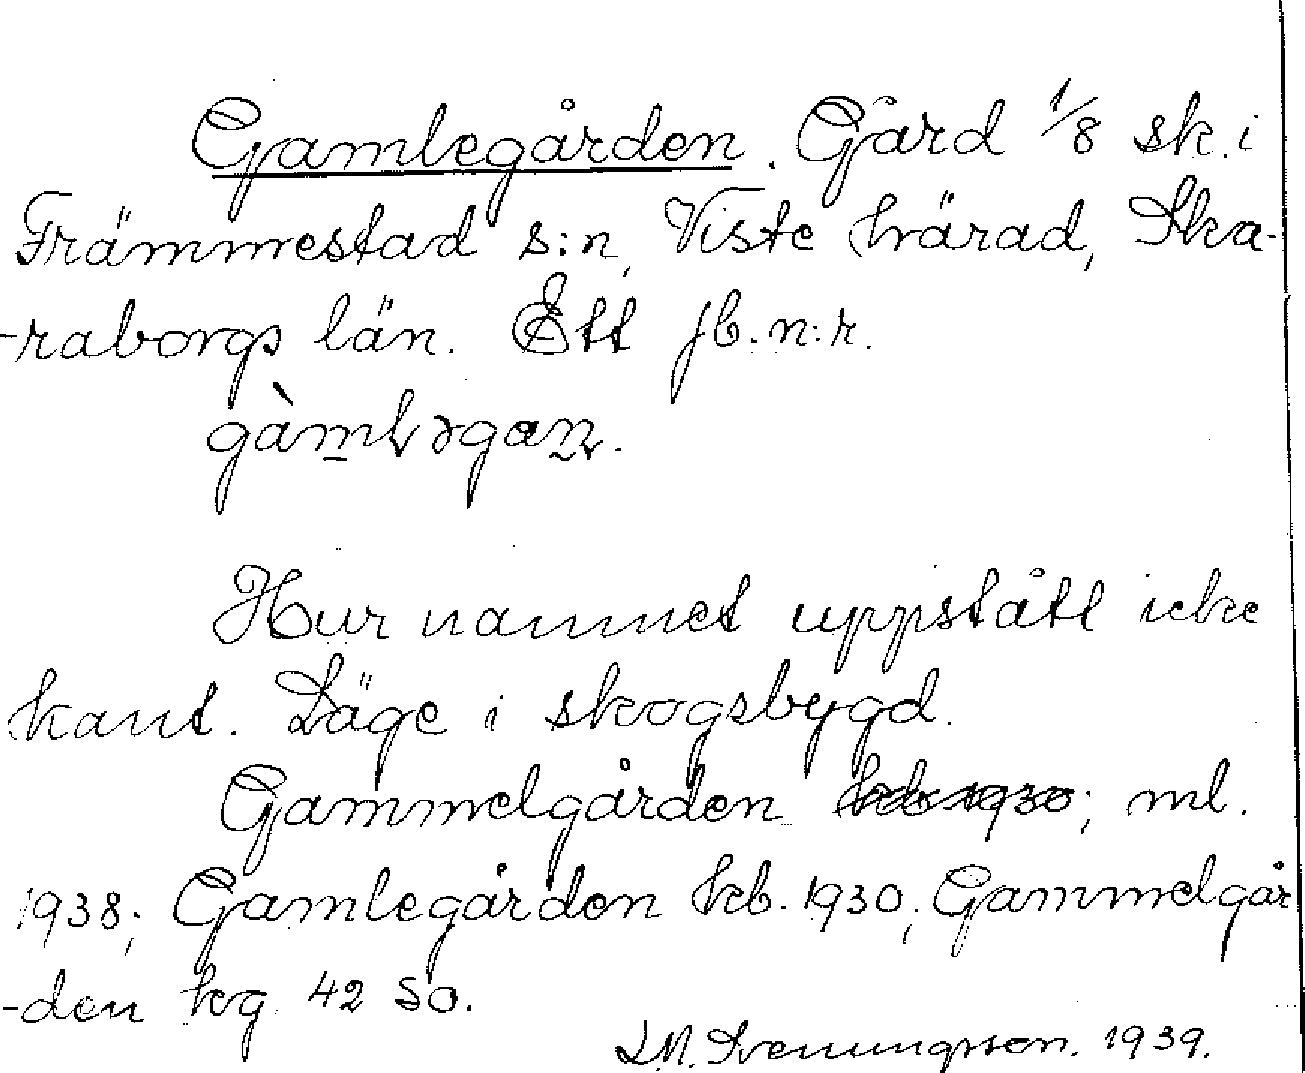 Gamlegården. Gård 1/8 sk. i
Främmestad s:n, Viste härad, Ska-
-raborgs län. Ett jb. n:r.
gàmləgan.
Hur namnet uppstått icke
känt. Läge i skogsbygd.
Gammelgården kb 1930; ml.
1938; Gamlegården kb. 1930; Gammelgår
-den kg. 42 So.